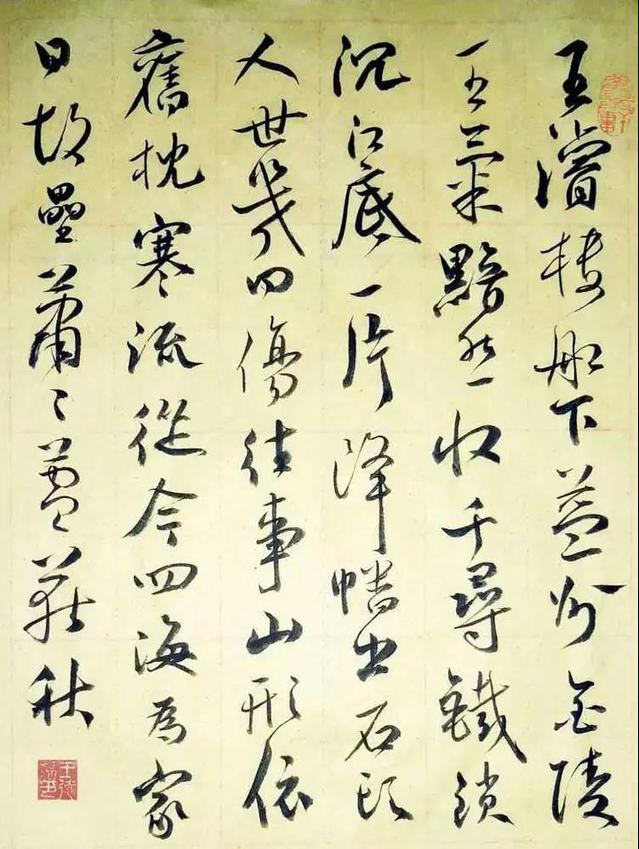 王濬樓船下益州金陵
王氣黯然收千尋鐵鎖
沉江底一片降幡出石頭
人世幾回傷往事山形依
舊枕寒流從今四海為家
日故壘蕭〻蘆荻秋